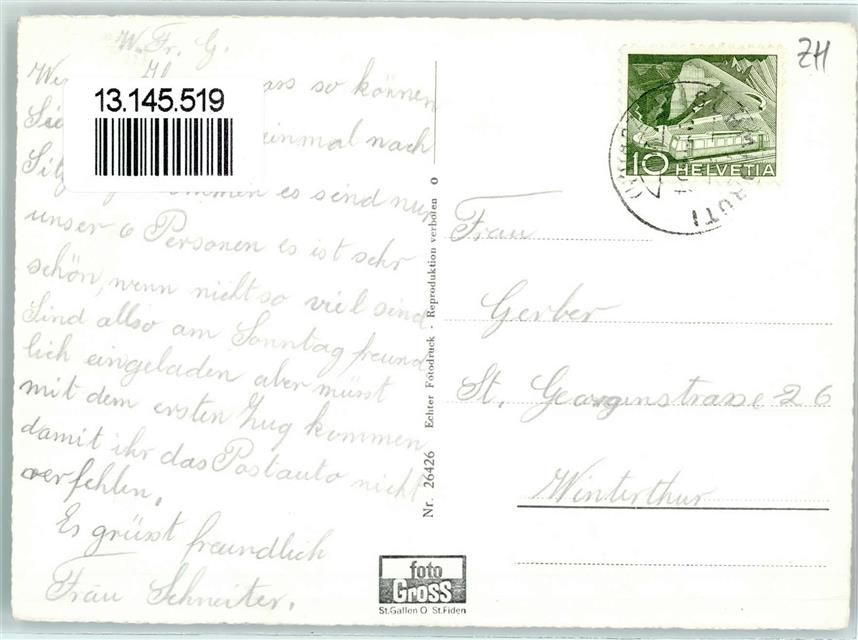 W. Fr. G.
so können
Sie einmal nach
kommen es sind nur
unser 6 Personen es ist sehr
schön, wenn nicht so viel sind
Sind allso am Sonntag freund
lich eingeladen aber müsst
mit dem ersten Zug kommen
damit ihr das Postauto nicht
verfehlen.
Es grüsst freundlich
Frau Schneiter.
13.145.519
Nr. 26426 Echter Fotodruck - Reproduktion verboten O
foto
Gross
St.Gallen O St.Fiden
ZH
10 HELVETIA
RÜTI
Frau
Gerber
St. Georgenstrasse 26
Winterthur